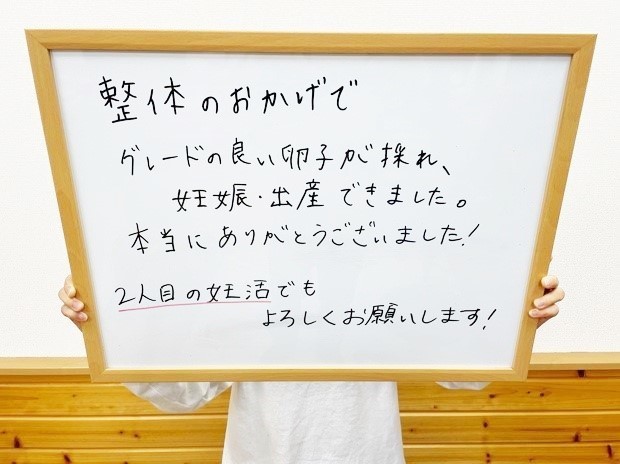 整体のおかげで
グレードの良い卵子が採れ、
妊娠・出産できました。
本当にありがとうございました!
2人目の妊活でも
よろしくお願いします!